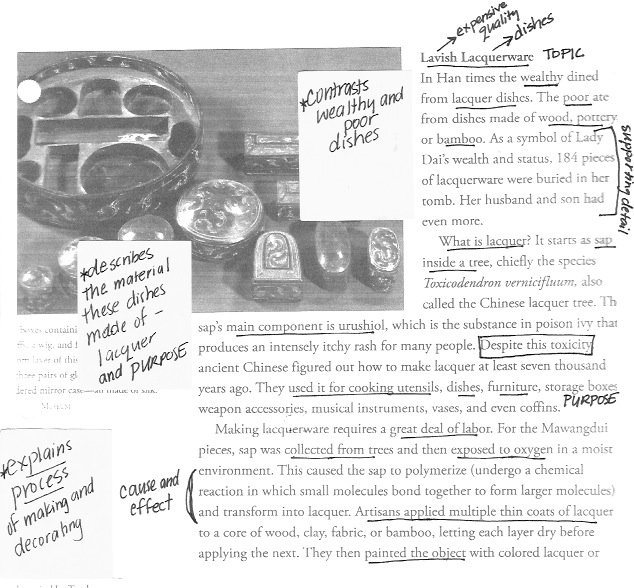 expensive
quality
dishes
Lavish Lacquerware TOPIC
In Han times the wealthy dined
from lacquer dishes. The poor ate
from dishes made of wood, pottery,
or bamboo. As a symbol of Lady
Dai's wealth and status, 184 pieces
of lacquerware were buried in her
tomb. Her husband and son had
even more.
supporting detail
*contrasts
wealthy and
poor
dishes
What is lacquer? It starts as sap
inside a tree, chiefly the species
Toxicodendron vernicifluum, also
called the Chinese lacquer tree. Th
sap's main component is urushiol, which is the substance in poison ivy that
produces an intensely itchy rash for many people. Despite this toxicity
ancient Chinese figured out how to make lacquer at least seven thousand
years ago. They used it for cooking utensils, dishes, furniture, storage boxes
weapon accessories, musical instruments, vases, and even coffins. PURPOSE
*describes
the material
these dishes
made of –
lacquer
and PURPOSE
boxes containi
wig, and f
layer of this
three pairs of gl
mirror case
made of silk.
MUSEUM
Making lacquerware requires a great deal of labor. For the Mawangdui
pieces, sap was collected from trees and then exposed to oxygen in a moist
environment. This caused the sap to polymerize (undergo a chemical
reaction in which small molecules bond together to form larger molecules)
and transform into lacquer. Artisans applied multiple thin coats of lacquer
to a core of wood, clay, fabric, or bamboo, letting each layer dry before
applying the next. They then painted the object with colored lacquer or
*explains
process
of making and
decorating
cause and
effect